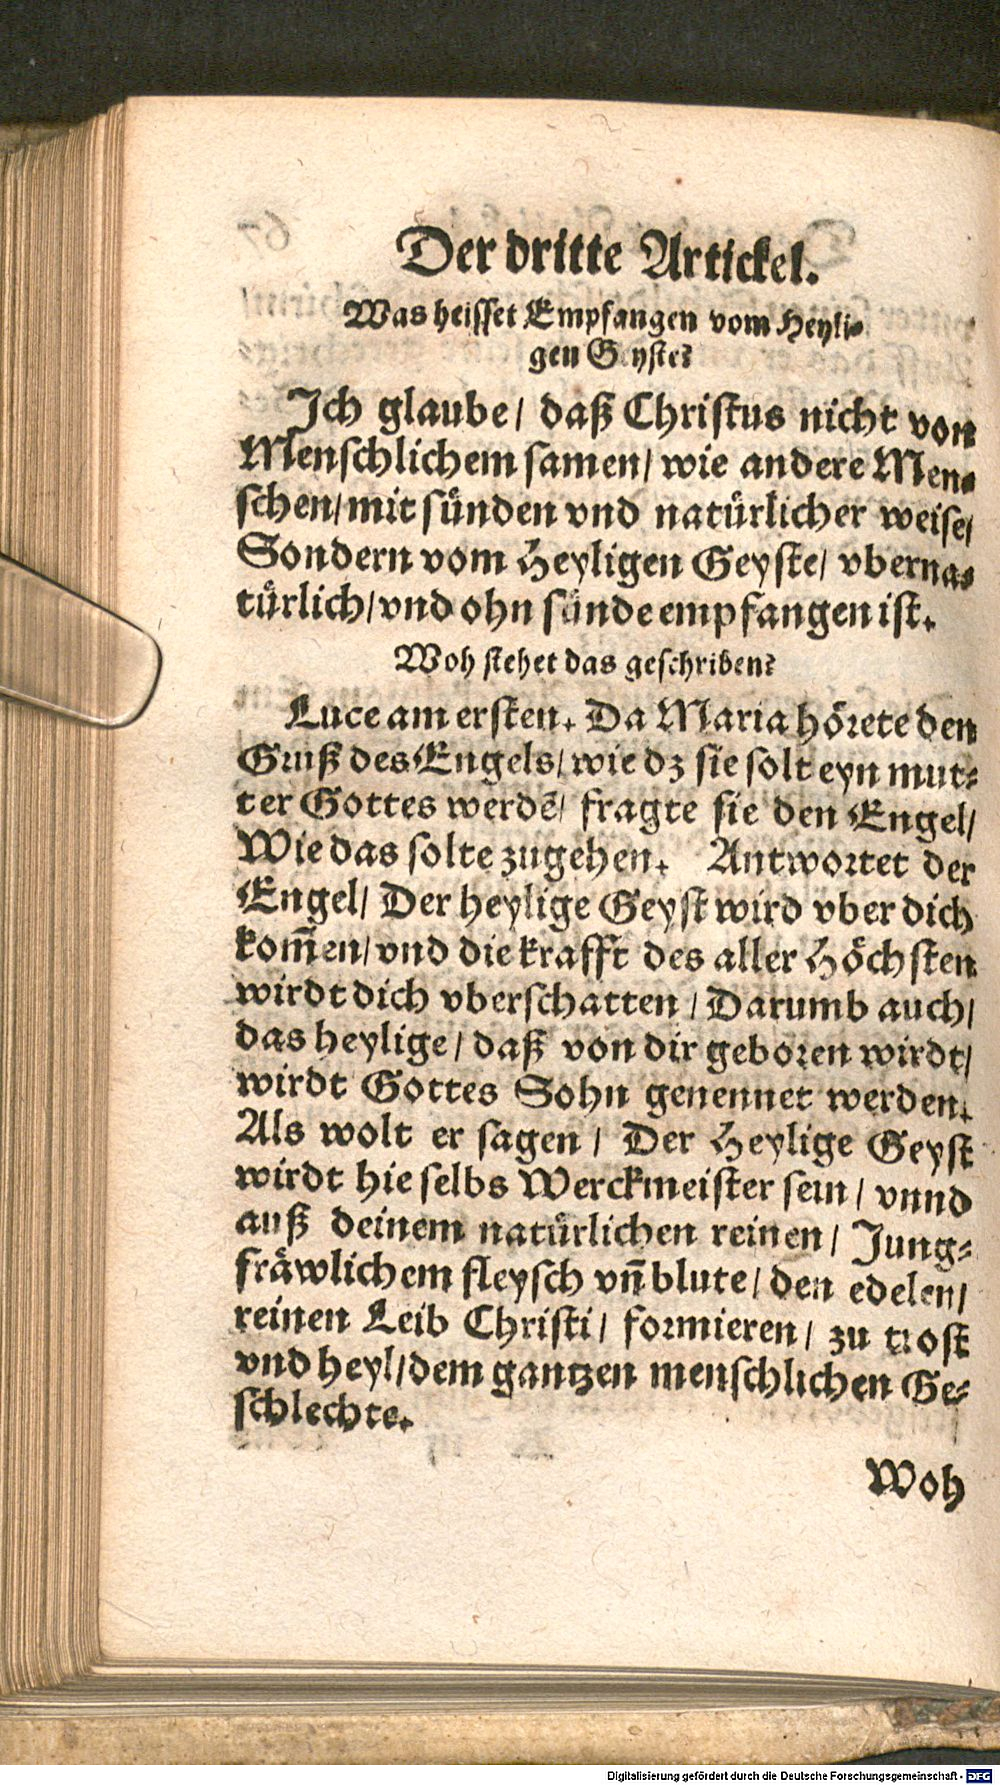 Der dritte Artickel.
Was heisset Empfangen vom Heyli-
gen Geyste?
Ich glaube/ daß Christus nicht von
Menschlichem samen/ wie andere Men-
schen/ mit sünden vnd natürlicher weise/
Sondern vom Heyligen Geyste/ vberna-
türlich/ vnd ohn sünde empfangen ist.
Woh stehet das geschriben?
Luce am ersten. Da Maria hörete den
Gruß des Engels/ wie dz sie solt eyn mut-
ter Gottes werdẽ/ fragte sie den Engel/
Wie das solte zugehen. Antwortet der
Engel/ Der heylige Geyst wird vber dich
kom̃en/ vnd die krafft des aller Höchsten
wirdt dich vberschatten/ Darumb auch/
das heylige/ daß von dir geboren wirdt/
wirdt Gottes Sohn genennet werden.
Als wolt er sagen/ Der Heylige Geyst
wirdt hie selbs Werckmeister sein/ vnnd
auß deinem natürlichen reinen/ Jung-
fräwlichem fleysch vñ blute/ den edelen/
reinen Leib Christi/ formieren/ zu trost
vnd heyl/ dem gantzen menschlichen Ge-
schlechte.
Woh
Digitalisierung gefördert durch die Deutsche Forschungsgemeinschaft - DFG